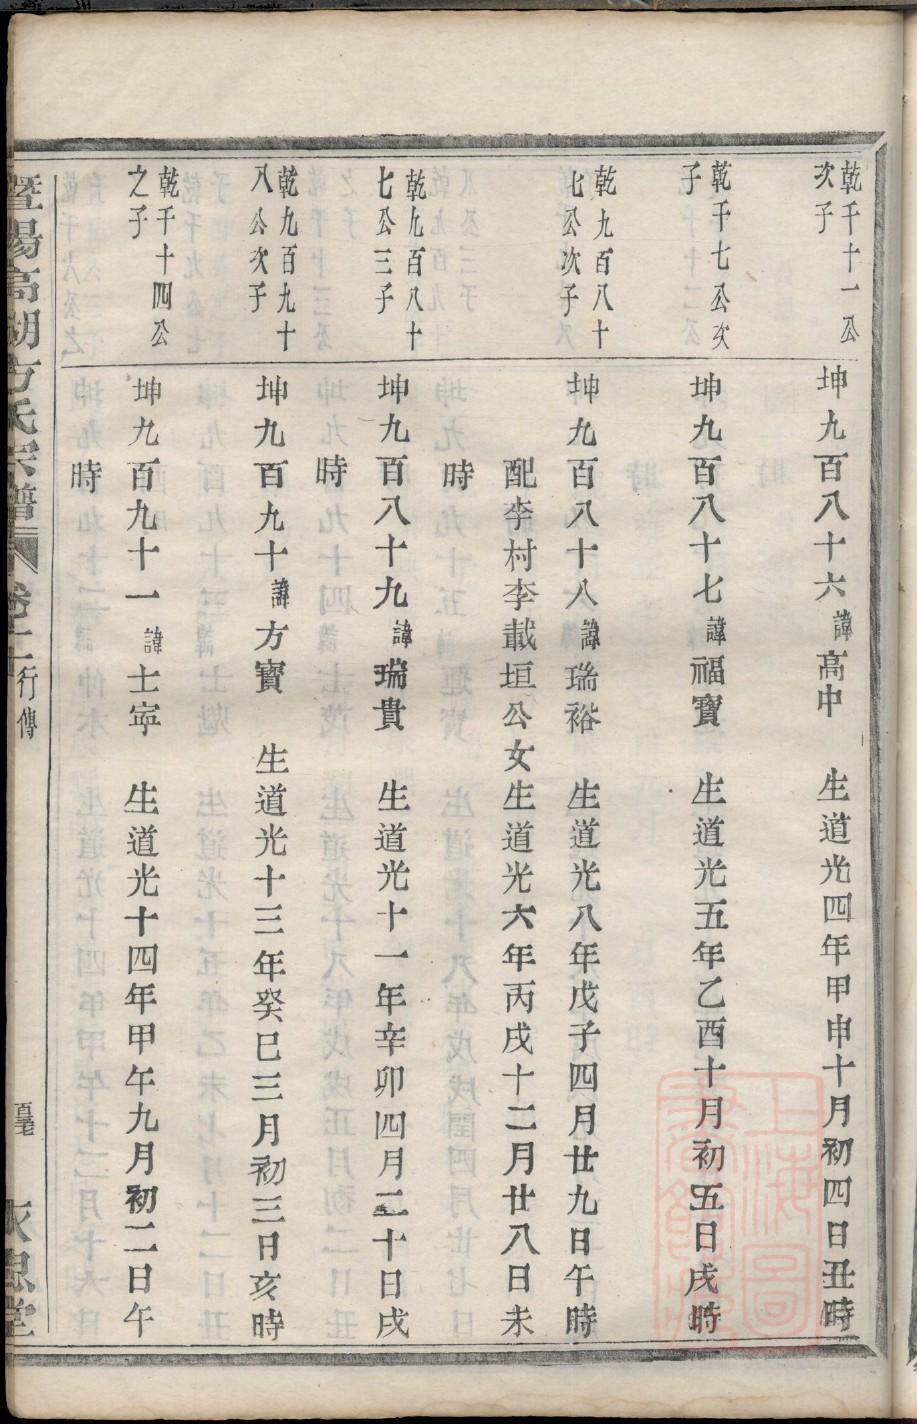 乾千十一公
次子
坤九百八十六諱高中 生道光四年甲申十月初四日丑時
乾千七公次
子
坤九百八十七諱福寶 生道光五年乙酉十月初五日戌時
乾九百八十
七公次子
坤九百八十八諱瑞裕 生道光八年戊子四月廿九日午時
配李村李載垣公女生道光六年丙戌十二月廿八日未
時
乾九百八十
七公三子
坤九百八十九諱瑞貴 生道光十一年辛卯四月二十日戌
時
乾九百九十
八公次子
坤九百九十諱方寶 生道光十三年癸巳三月初三日亥時
乾千十四公
之子
坤九百九十一諱士寍 生道光十四年甲午九月初二日午
時
暨陽高湖方氏宗譜
行傳
忠堂